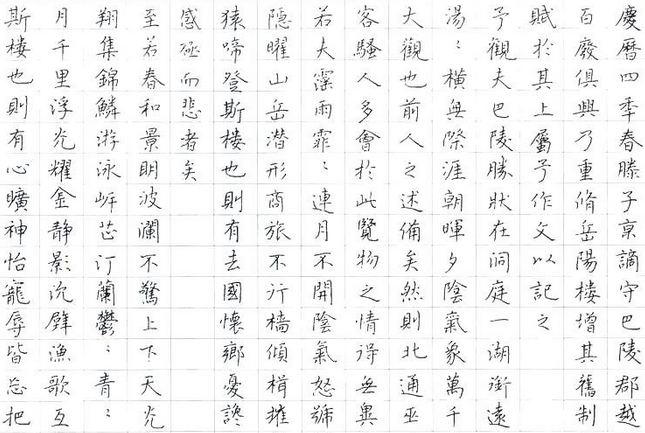 慶曆四年春滕子京謫守巴陵郡越
百廢俱興乃重脩岳陽樓增其舊制
賦於其上屬予作文以記之
予觀夫巴陵勝狀在洞庭一湖銜遠
湯〻橫無際涯朝暉夕陰氣象萬千
大觀也前人之述備矣然則北通巫
客騷人多會於此覽物之情得無異
若夫霪雨霏〻連月不開陰氣怒號
隱曜山岳潛形商旅不行檣傾楫摧
猿啼登斯樓也則有去國懷鄉憂讒
感極而悲者矣
至若春和景明波瀾不驚上下天光
翔集錦鱗游泳岸芷汀蘭鬱〻青〻
月千里浮光耀金靜影沉璧漁歌互
斯樓也則有心曠神怡寵辱皆忘把